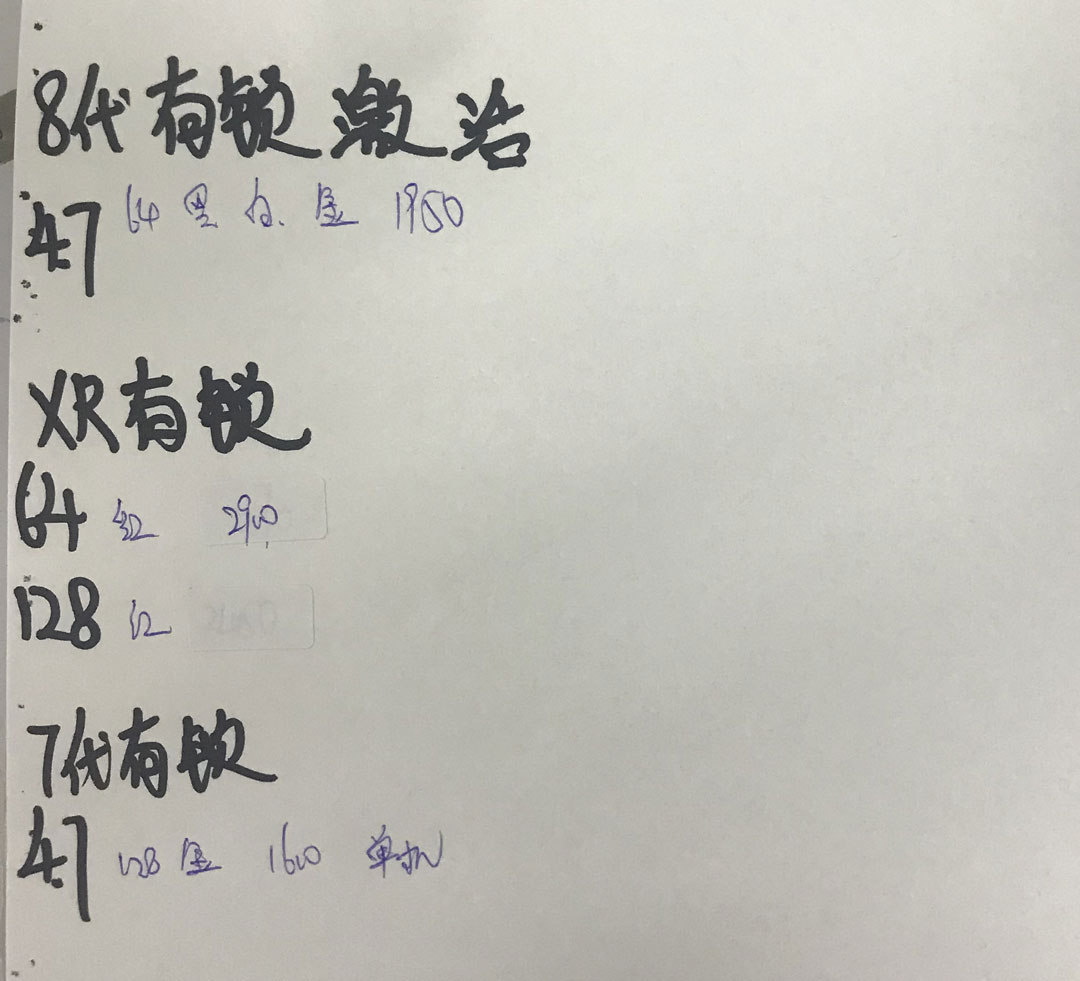 8代有锁激活
4.7 64 黑 白. 金 1950
XR有锁
64 红 2900
128 红
7代有锁
4.7 128 金 1600 单机